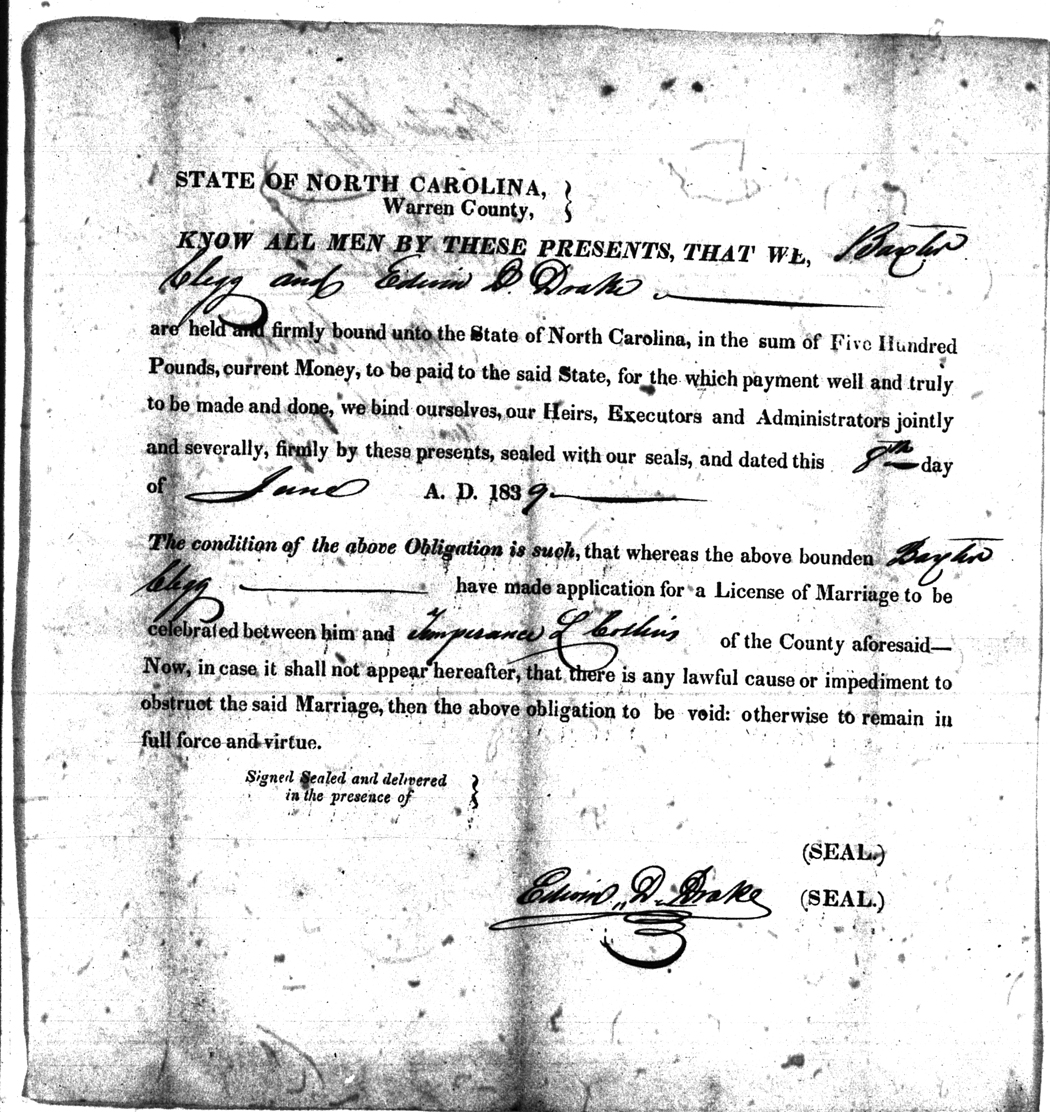 STATE OF NORTH CAROLINA,
Warren County,
KNOW ALL MEN BY THESE PRESENTS, THAT WE, Baxter
Clegg and Edwin D. Drake
are held and firmly bound unto the State of North Carolina, in the sum of Five Hundred
Pounds, current Money, to be paid to the said State, for the which payment well and truly
to be made and done, we bind ourselves, our Heirs, Executors and Administrators jointly
and severally, firmly by these presents, sealed with our seals, and dated this 8th day
of June A. D. 1839
The condition of the above Obligation is such, that whereas the above bounden Baxter
Clegg have made application for a License of Marriage to be
celebrated between him and Temperance L Collins of the County aforesaid—
Now, in case it shall not appear hereafter, that there is any lawful cause or impediment to
obstruct the said Marriage, then the above obligation to be void: otherwise to remain in
full force and virtue.
Signed Sealed and delivered
in the presence of
(SEAL.)
Edwin D. Drake (SEAL.)